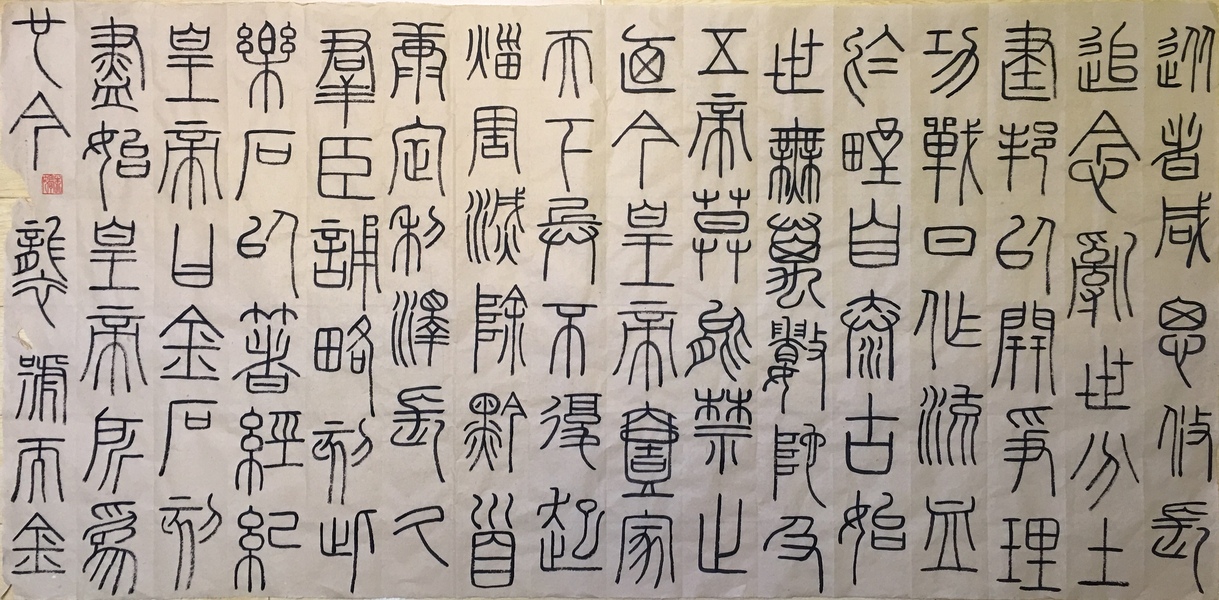 從者咸思攸長
追念亂世分土
建邦以開爭理
功戰日作流血
於野自泰古始
世無萬數陀及
五帝莫能禁止
廼今皇帝壹家
天下兵不復起
災害滅除黔首
康定利澤長久
羣臣誦略刻此
樂石以著經紀
皇帝曰金石刻
盡始皇帝所為
也今襲號而金